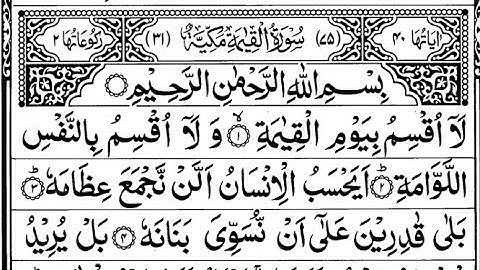 اٰیَاتُهَا ۴۰ (۷۵) سُوْرَةُ الْقِیٰمَةِ مَكِّیَّةٌ (۳۱) رُكُوْعَاتُهَا ۲
بِسْمِ اللهِ الرَّحْمٰنِ الرَّحِیْمِ
لَاۤ اُقْسِمُ بِیَوْمِ الْقِیٰمَةِ ۱ وَ لَاۤ اُقْسِمُ بِالنَّفْسِ
اللَّوَّامَةِ ؕ ۲ اَیَحْسَبُ الْاِنْسَانُ اَلَّنْ نَّجْمَعَ عِظَامَهٗ ؕ ۳
بَلٰی قٰدِرِیْنَ عَلٰۤی اَنْ نُّسَوِّیَ بَنَانَهٗ ۴ بَلْ یُرِیْدُ